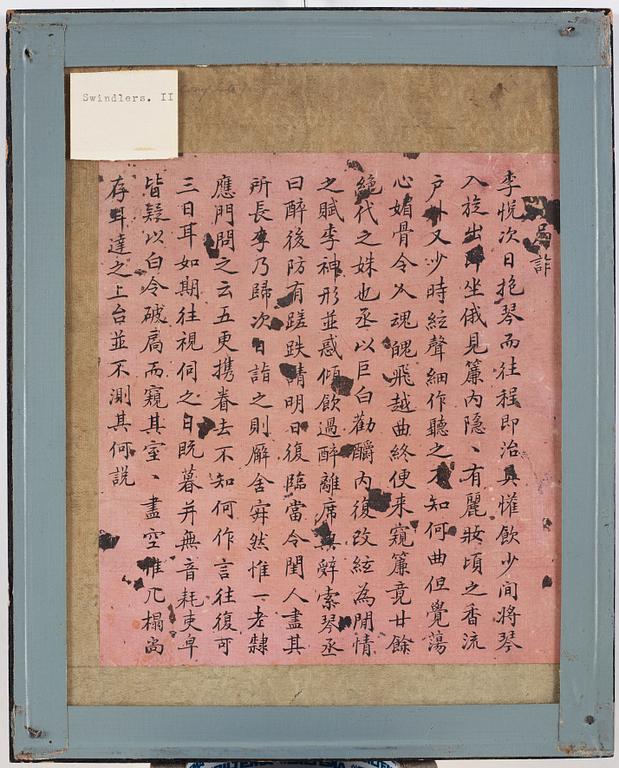 Swindlers. II
局詐
李悅次日抱琴而往程即治具懽飲少間將琴
入旋出即坐俄見簾內隱、有麗妝頃之香流
户外又少時絃聲細作聽之不知何曲但覺蕩
心媚骨令人魂魄飛越曲終便來窺簾竟廿餘
絕代之姝也丞以巨白勸釂內復改絃為閒情
之賦李神形並惑傾飲過醉離席興辭索琴丞
曰醉後防有蹉跌請明日復臨當令閨人盡其
所長李乃歸次日詣之則廨舍寂然惟一老隸
應門問之云五更攜眷去不知何作言往復可
三日耳如期往視伺之日既暮并無音耗吏皁
皆疑以白令破扃而窺其室、盡空惟几榻尚
存耳達之上台並不測其何説